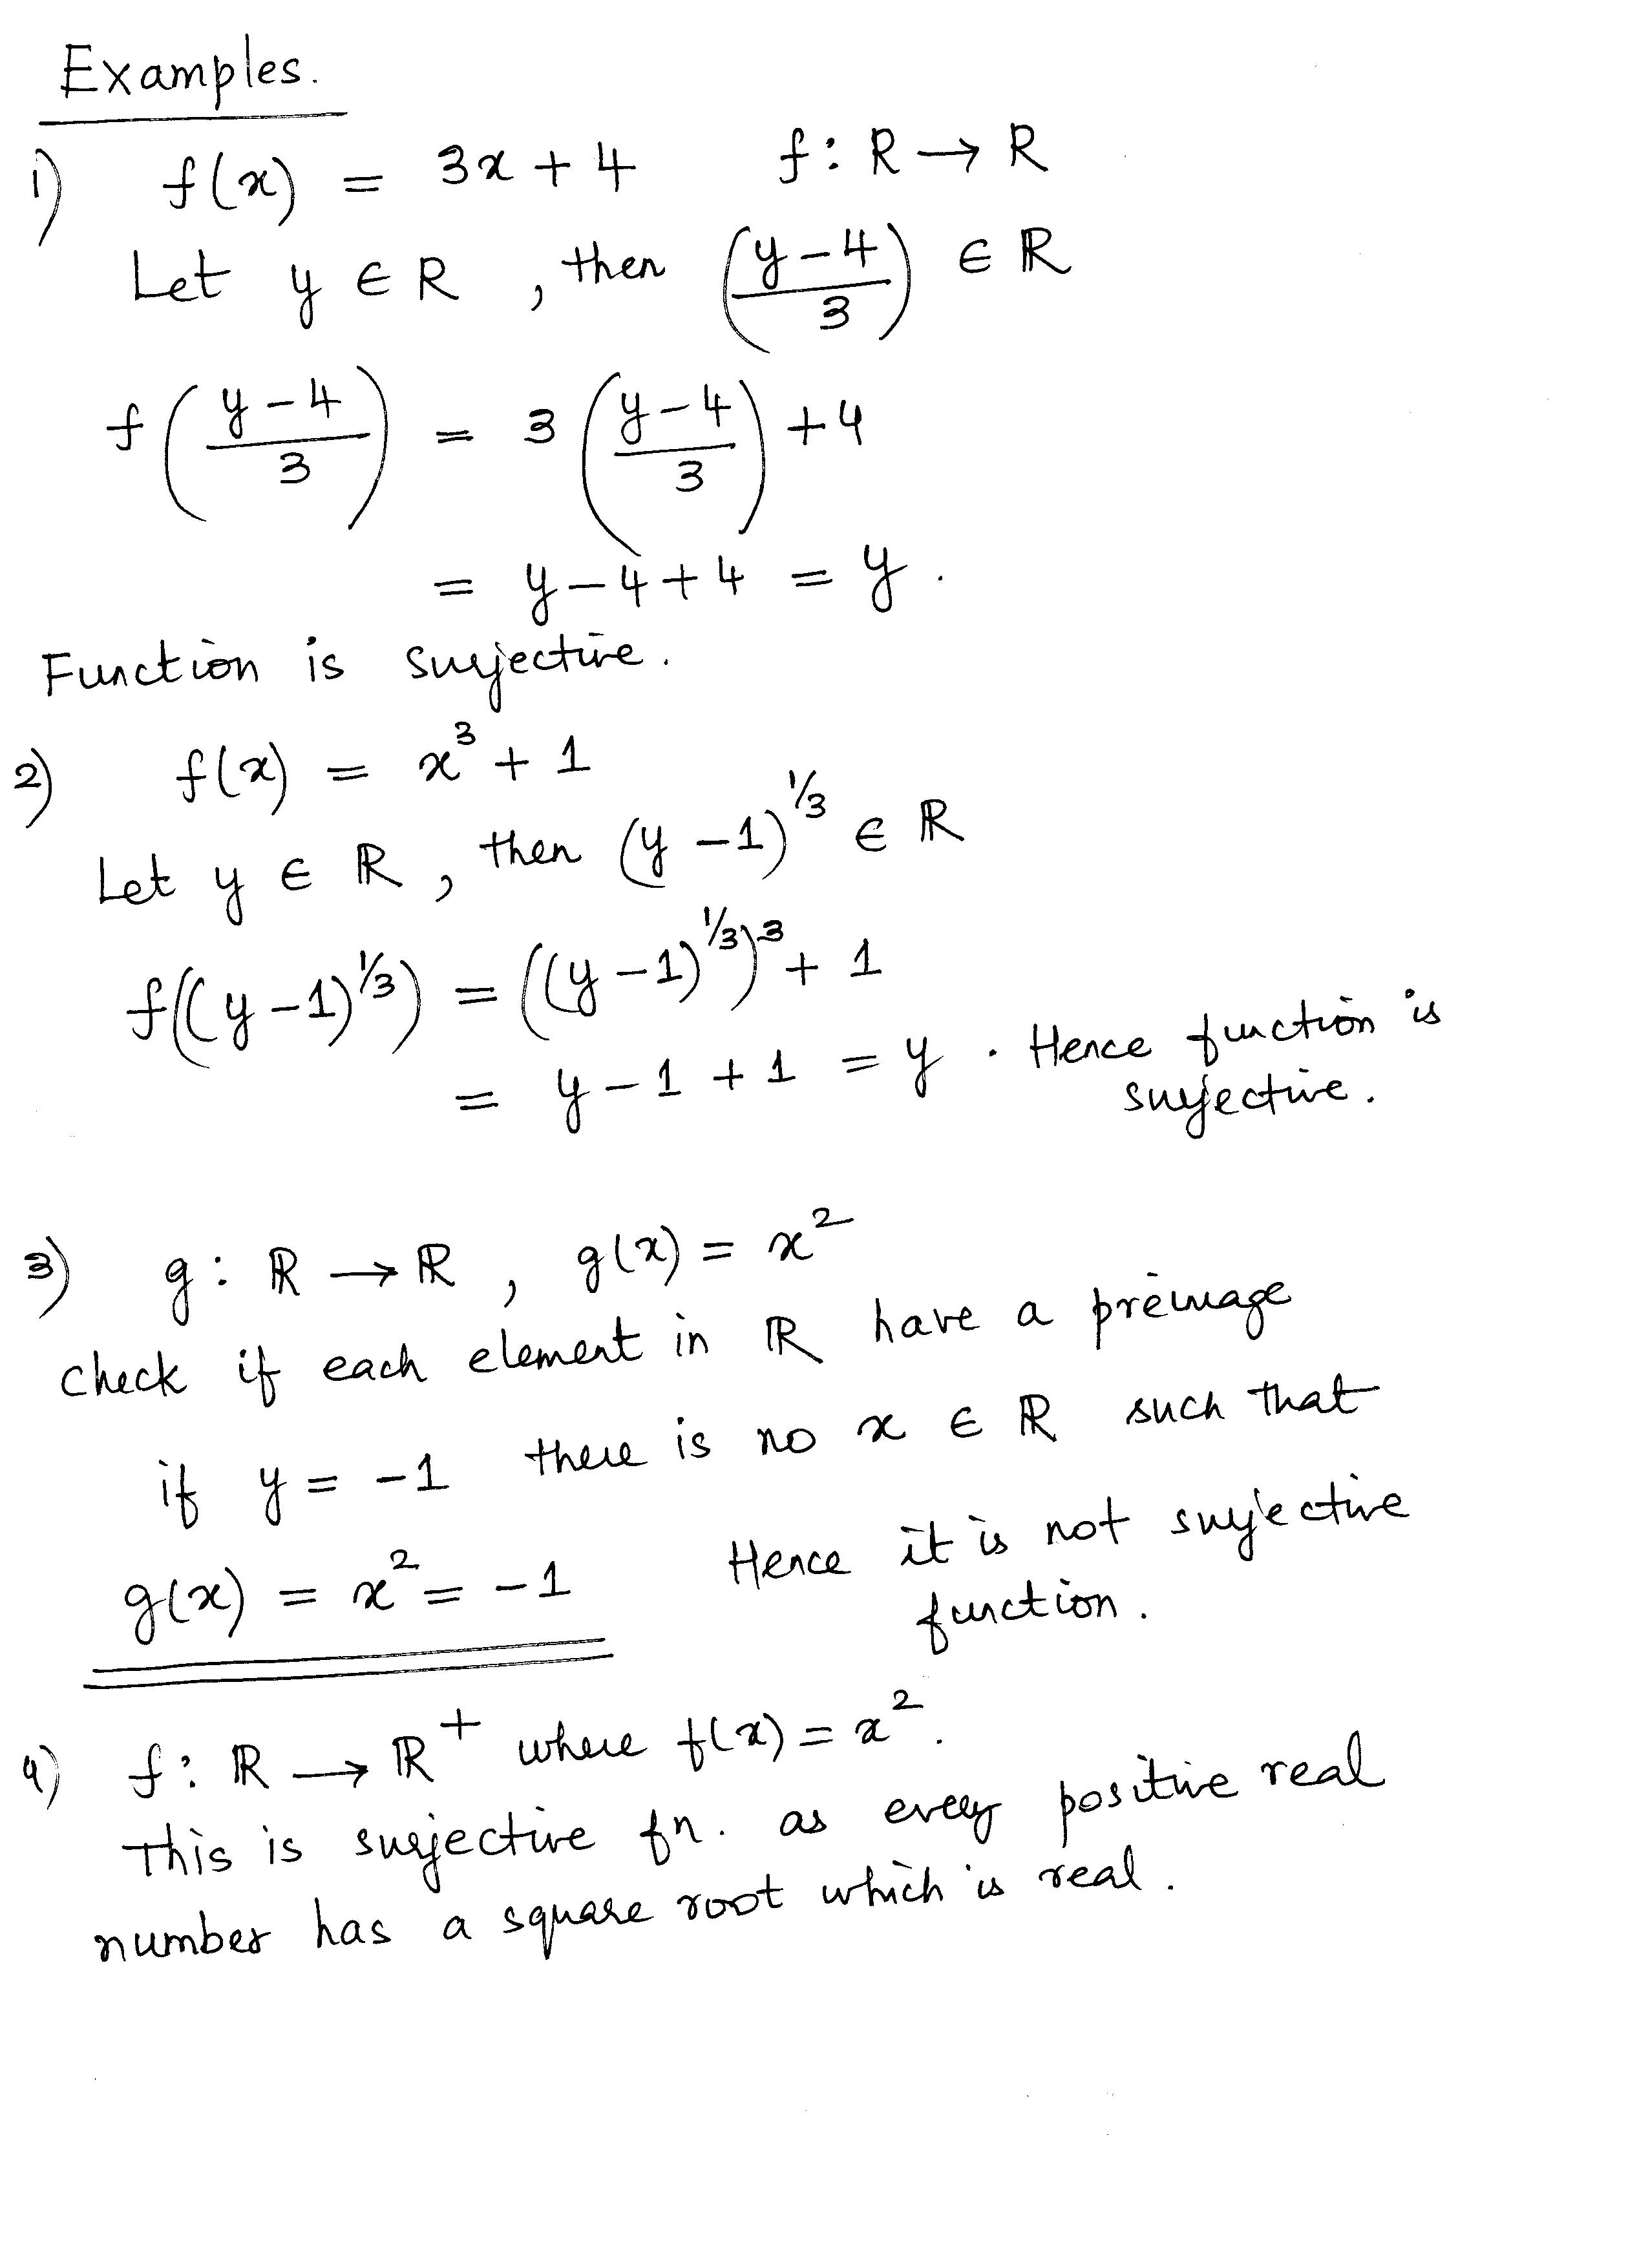 Examples.
1) f(x) = 3x + 4 f : R → R
Let y ∈ R , then ((y-4)/3) ∈ ℝ
f((y-4)/3) = 3((y-4)/3) + 4
= y - 4 + 4 = y .
Function is surjective.
2) f(x) = x³ + 1
Let y ∈ ℝ , then (y - 1)^(1/3) ∈ ℝ
f((y - 1)^(1/3)) = ((y - 1)^(1/3))³ + 1
= y - 1 + 1 = y . Hence function is
surjective.
3) g : ℝ → ℝ , g(x) = x²
check if each element in ℝ have a preimage
if y = -1 there is no x ∈ ℝ such that
g(x) = x² = -1 Hence it is not surjective
function.
4) f : ℝ → ℝ⁺ where f(x) = x².
This is surjective fn. as every positive real
number has a square root which is real.